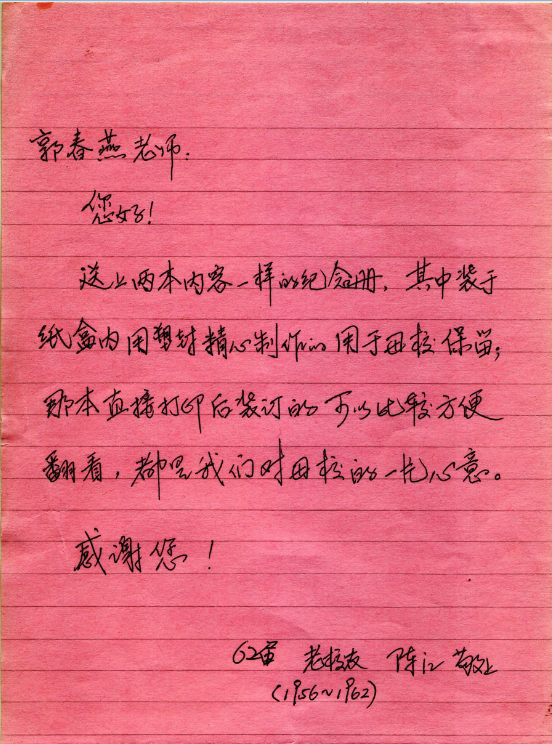 郭春燕老师:
您好!
送上两本内容一样的纪念册,其中装于
纸盒内用塑封精心制作的用于母校保留;
那本直接打印后装订的可以比较方便
翻看,都是我们对母校的一片心意。
感谢您!
62届 老校友 陈江 敬上
(1956~1962)